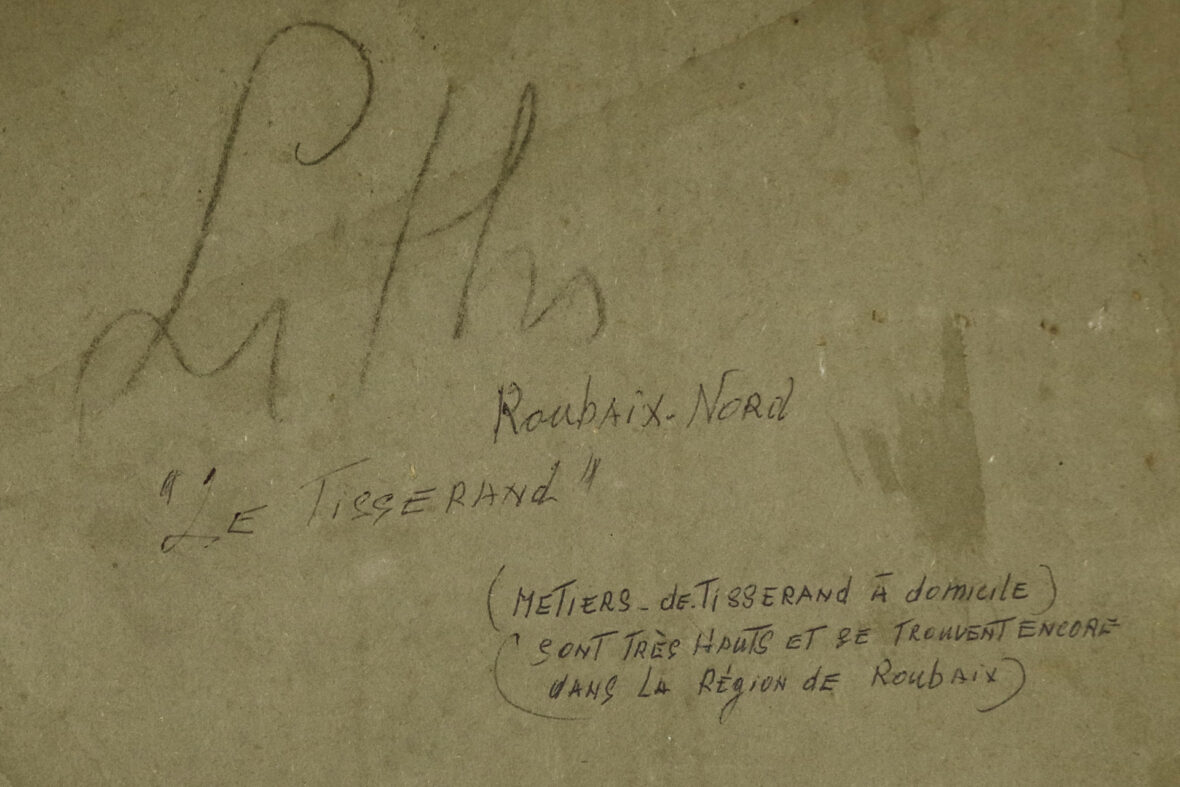 Roubaix-Nord
"Le Tisserand"
(METIERS-de.TISSERAND À domicile)
(SONT TRÈS HAUTS ET SE TROUVENT ENCORE
dANS LA RÉgiON dE Roubaix)